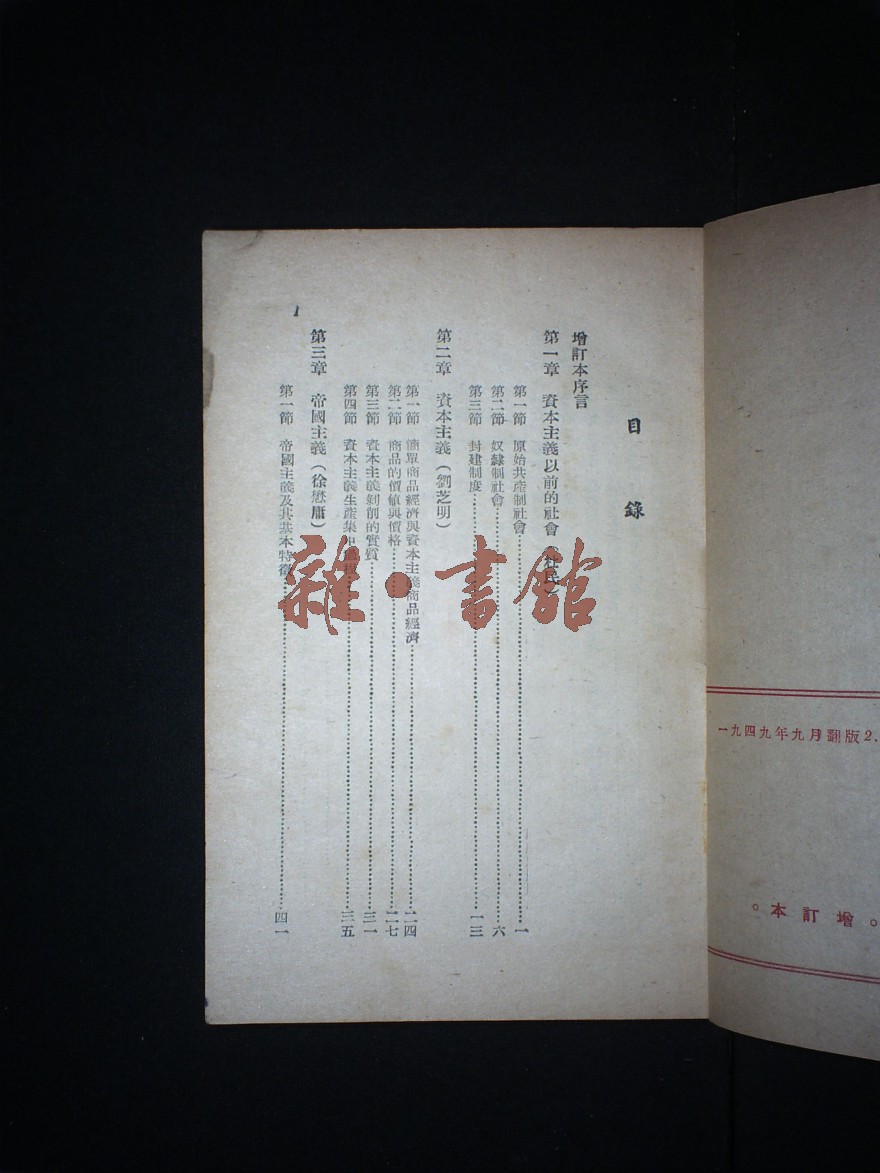 一九四九年九月翻版2.
。增訂本。
目錄
增訂本序言
第一章 資本主義以前的社會(杜民)
第一節 原始共產制社會………一
第二節 奴隸制社會………六
第三節 封建制度………一三
第二章 資本主義(劉芝明)
第一節 簡單商品經濟與資本主義商品經濟………二四
第二節 商品的價值與價格………二七
第三節 資本主義剝削的實質………三一
第四節 資本主義生產集中………三五
第三章 帝國主義(徐懋庸)
第一節 帝國主義及其基本特徵………四一
1
雜·書館